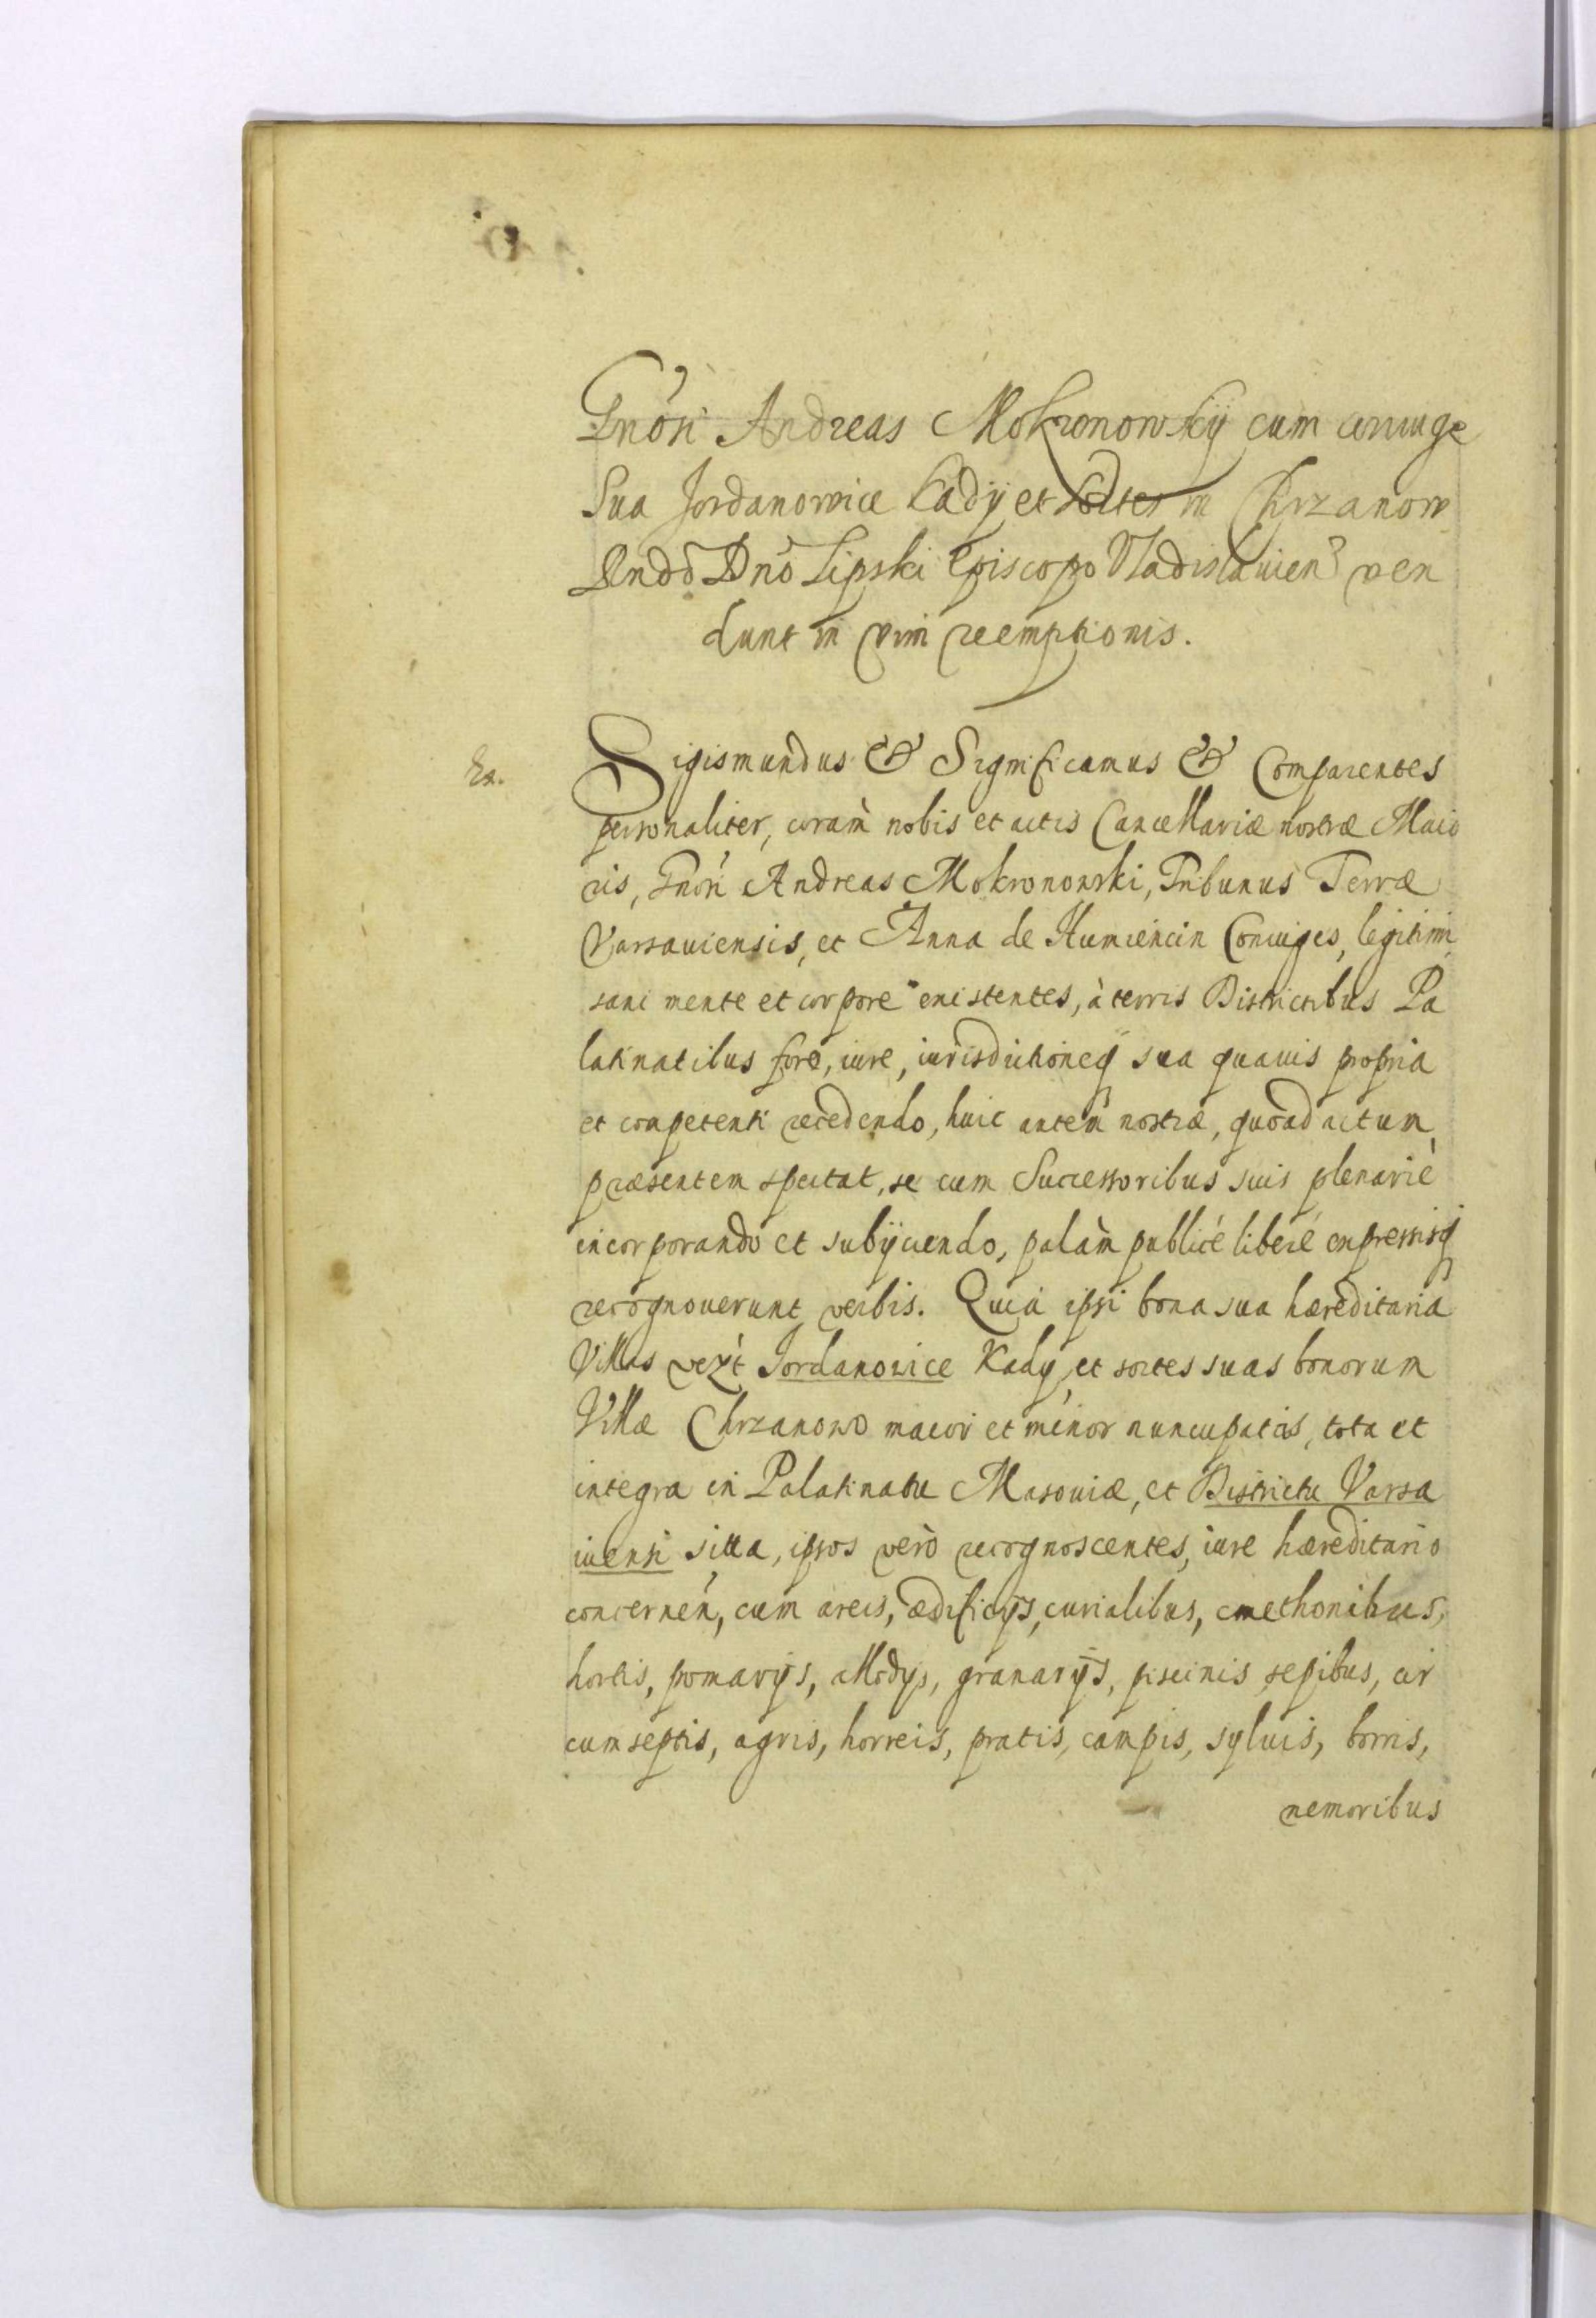 Gnosi Andreas Mokronowskÿ cum coniuge
Sua Jordanowice Kadÿ et sortes in Chrzanow
Rndo Dno Lipski Episcopo Vladislauien ven
dunt in vim reemptionis.
Ex.
Sigismundus & Significamus & Comparentes
personaliter, coram nobis et actis Cancellariæ nostræ Maio
ris, Gnosi Andreas Mokronowski, Tribunus Terræ
Varsauiensis, et Anna de Humiencin Coniuges, legitimi,
sani mente et corpore existentes, à terris Districtibus Pa
latinatibus foro, iure, iurisdictioneq sua quauis propria
et competenti recedendo, huic autem nostræ, quoad actum
præsentem spectat, se cum Successoribus suis plenariè
incorporando et subÿciendo, palàm publicé liberé expressisq
recognouerunt verbis. Quia ipsi bona sua hæreditaria
Villas vezt Jordanowice Kady et sortes suas bonorum
Villæ Chrzanowo maior et minor nuncupatis, tota et
integra in Palatinatu Masouiæ, et Districtu Varsa
uiensi sitta, ipsos verò recognoscentes, iure hæreditario
concernen, cum areis, ædificÿs, curialibus, cmethonibus,
hortis, pomarÿs, allodÿs, granarÿs, piscinis, sepibus, cir
cumseptis, agris, horreis, pratis, campis, syluis, borris,
nemoribus